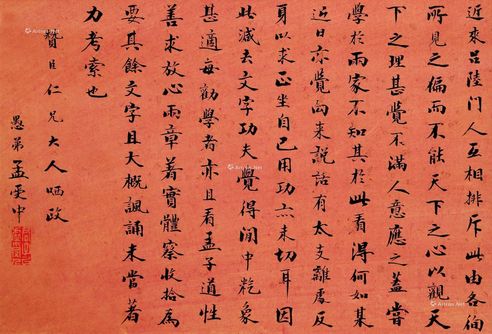 近來呂陸門人互相排斥此由各徇
所見之偏而不能天下之心以觀天
下之理甚覺不滿人意應之蓋嘗
學於兩家不知其於此看得何如某
近日亦覺向來說話有太支離處反
身以求正坐自己用功亦未切耳因
此減去文字功夫覺得閒中氣象
甚適每勸學者亦且看孟子道性
善求放心兩章著實體察收拾為
要其餘文字且大概諷誦未嘗著
力考索也
贊臣仁兄大人哂政
愚弟孟雯中
Artron.Net